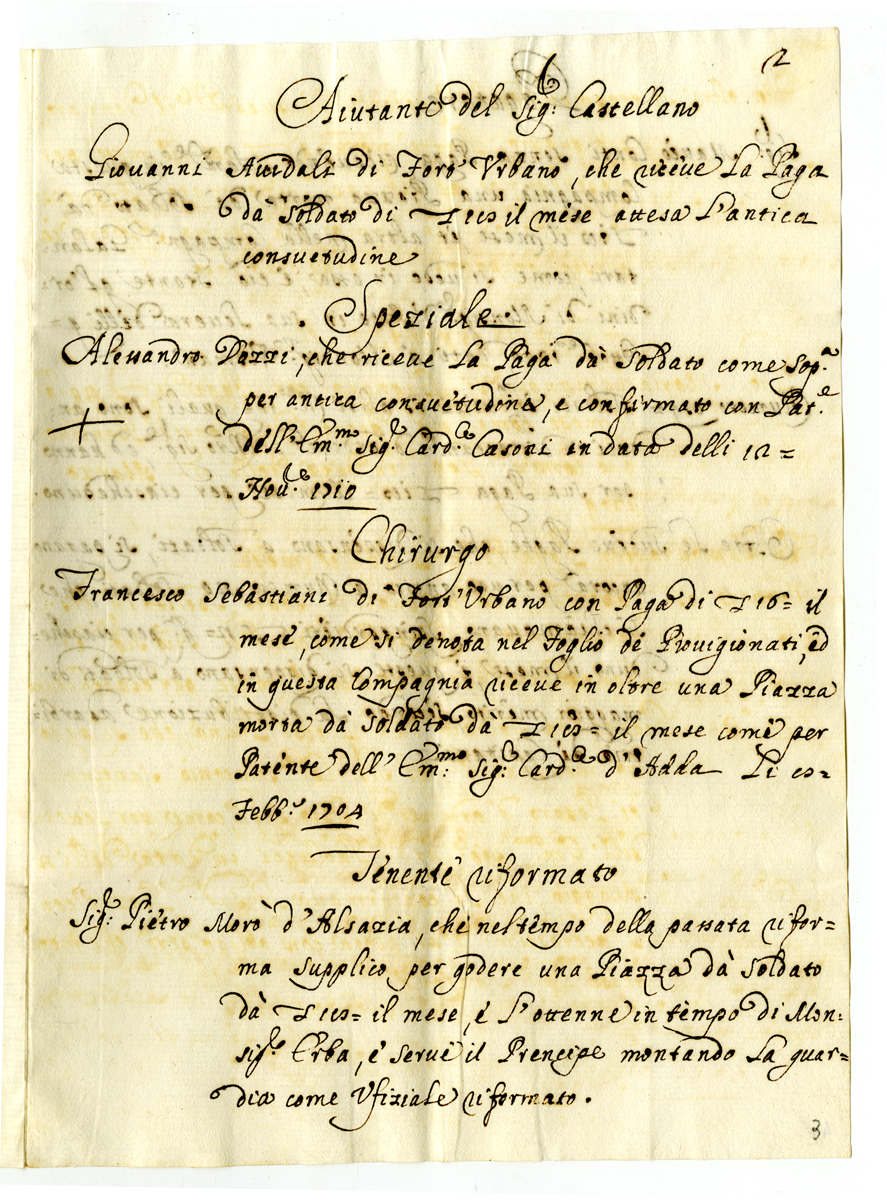 2
Aiutante del Sig.r Castellano
Giovanni Avidali di Forte Urbano, che riceve La Paga
da Soldato di il mese attesa L'antica
consuetudine
Speziale
Alessandro Dazzi, che riceve La Paga da Soldato come sop.a
per antica consuetudine, e confirmato con Pat.e
dell' Em.mo Sig.r Card.e Casoni in data delli 12=
Nov.e 1710
Chirurgo
Francesco Sebastiani di Fort' Urbano con Paga di il
mese, come si denota nel Foglio de Provigionati, ed
in questa Compagnia riceve in oltre una Piazza
morta da Soldato da il mese come per
Patente dell' Em.mo Sig.r Card.e d'Adda Li
Febb.o 1704
Tenente riformato
Sig.r Pietro Moro d'Alsazia, che nel tempo della passata rifor=
ma supplico per godere una Piazza da Soldato
da il mese, e L'ottenne in tempo di Mon=
sig.r Erba, e serve il Prencipe montando La guar=
dia come Ufiziale riformato.
3